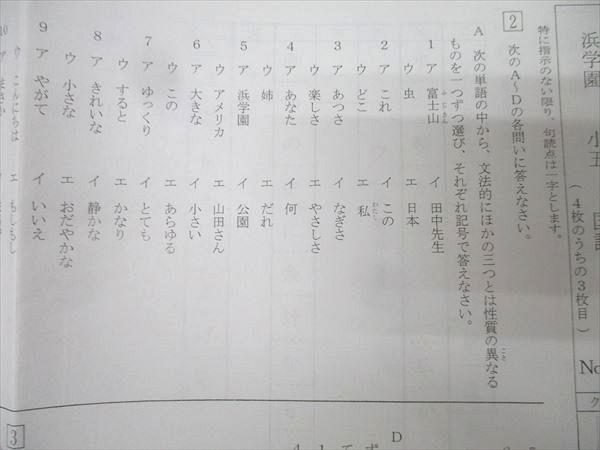 浜学園
小五
国語
(4枚のうちの3枚目)
No
ク
特に指示のない限り、句読点は一字とします。
2 次のA〜Dの各問いに答えなさい。
A 次の単語の中から、文法的にほかの三つとは性質の異なる
こと
ものを一つずつ選び、それぞれ記号で答えなさい。
1 ア 富士山 イ 田中先生
ふじさん
ウ 虫 エ 日本
2 ア これ イ この
ウ どこ エ 私
わたし
3 ア あつさ イ なぎさ
ウ 楽しさ エ やさしさ
4 ア あなた イ 何
ウ 姉 エ だれ
5 ア 浜学園 イ 公園
ウ アメリカ エ 山田さん
6 ア 大きな イ 小さい
ウ この エ あらゆる
7 ア ゆっくり イ とても
ウ すると エ かなり
8 ア きれいな イ 静かな
ウ 小さな エ おだやかな
9 ア やがて イ いいえ
ウ こんにちは エ もしもし
10 ア
3
D